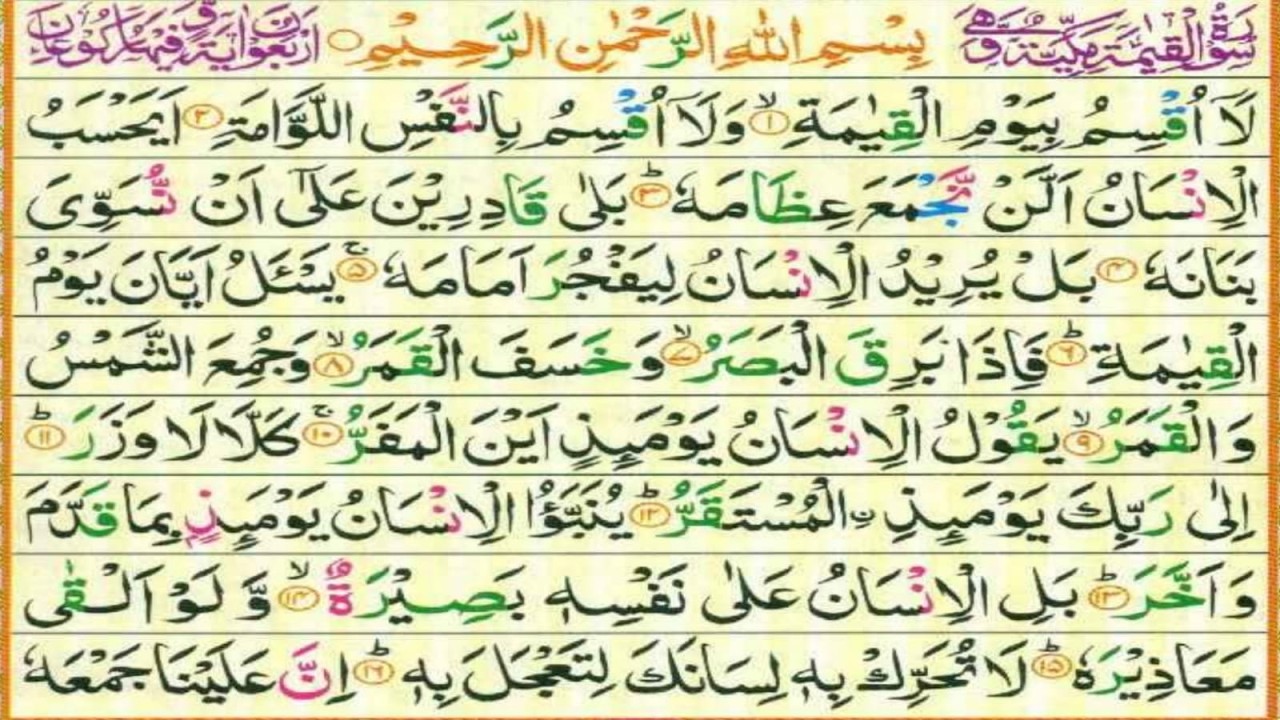 سُوْرَةُ الْقِيٰمَةِ مَكِّيَّةٌ وَّهِيَ بِسْمِ اللهِ الرَّحْمٰنِ الرَّحِيْمِ اَرْبَعُوْنَ اٰيَةً وَّفِيْهَا رُكُوْعَانِ
لَاۤ اُقْسِمُ بِيَوْمِ الْقِيٰمَةِ ۙ﴿۱﴾ وَلَاۤ اُقْسِمُ بِالنَّفْسِ اللَّوَّامَةِ ﴿۲﴾ اَيَحْسَبُ
الْاِنْسَانُ اَلَّنْ نَّجْمَعَ عِظَامَهٗ ؕ﴿۳﴾ بَلٰى قَادِرِيْنَ عَلٰۤى اَنْ نُّسَوِّىَ
بَنَانَهٗ ﴿۴﴾ بَلْ يُرِيْدُ الْاِنْسَانُ لِيَفْجُرَ اَمَامَهٗ ۚ﴿۵﴾ يَسْـَٔلُ اَيَّانَ يَوْمُ
الْقِيٰمَةِ ؕ﴿۶﴾ فَاِذَا بَرِقَ الْبَصَرُ ۙ﴿۷﴾ وَخَسَفَ الْقَمَرُ ۙ﴿۸﴾ وَجُمِعَ الشَّمْسُ
وَالْقَمَرُ ۙ﴿۹﴾ يَقُوْلُ الْاِنْسَانُ يَوْمَىِٕذٍ اَيْنَ الْمَفَرُّ ۚ﴿۱۰﴾ كَلَّا لَا وَزَرَ ؕ﴿۱۱﴾
اِلٰى رَبِّكَ يَوْمَىِٕذِ ۨالْمُسْتَقَرُّ ؕ﴿۱۲﴾ يُنَبَّؤُا الْاِنْسَانُ يَوْمَىِٕذٍۭ بِمَا قَدَّمَ
وَاَخَّرَ ؕ﴿۱۳﴾ بَلِ الْاِنْسَانُ عَلٰى نَفْسِهٖ بَصِيْرَةٌ ۙ﴿۱۴﴾ وَّلَوْ اَلْقٰى
مَعَاذِيْرَهٗ ؕ﴿۱۵﴾ لَا تُحَرِّكْ بِهٖ لِسَانَكَ لِتَعْجَلَ بِهٖ ؕ﴿۱۶﴾ اِنَّ عَلَيْنَا جَمْعَهٗ